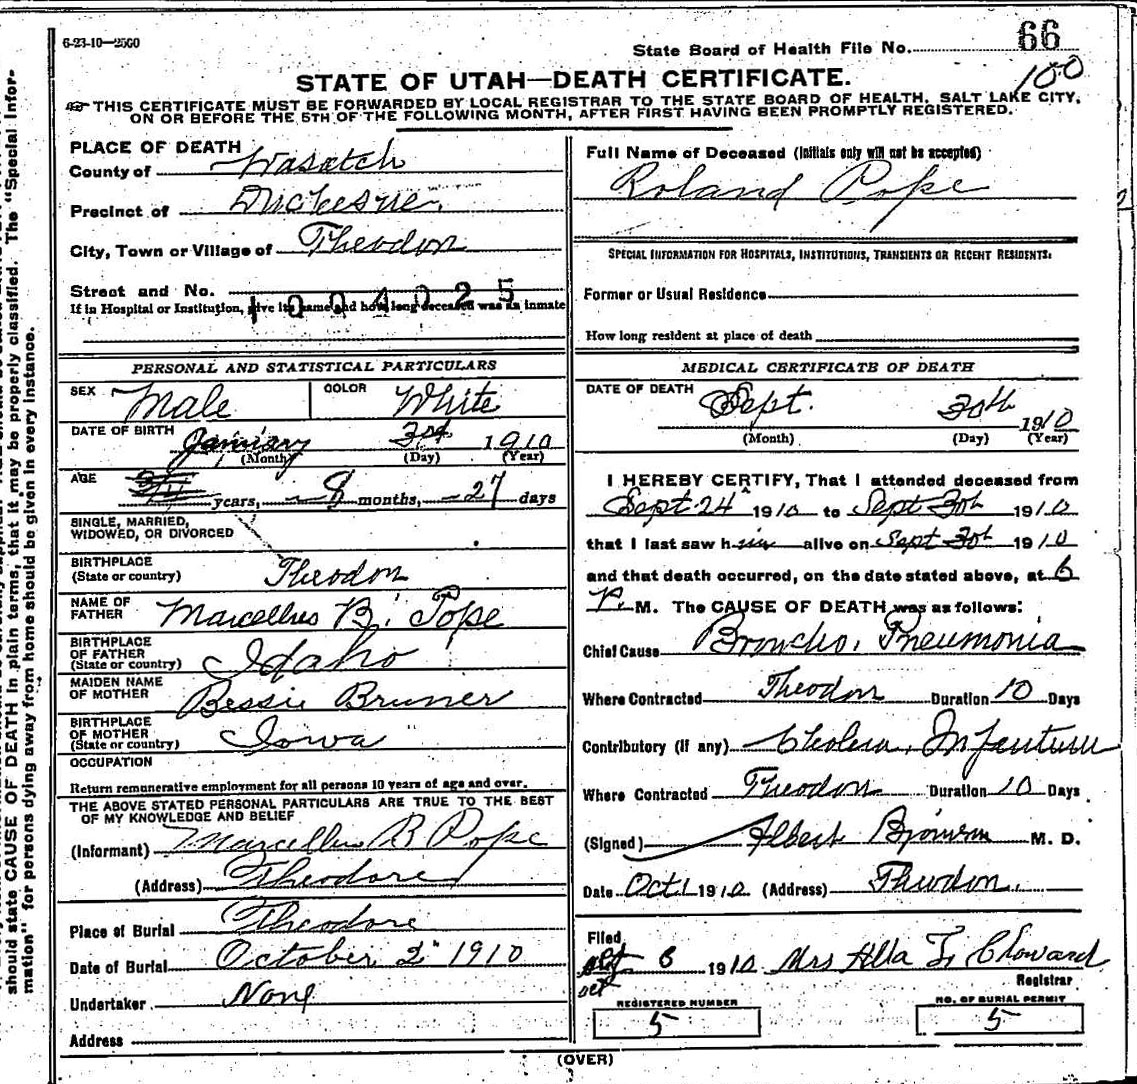 6-23-10—2500
State Board of Health File No. 66
100
STATE OF UTAH—DEATH CERTIFICATE.
THIS CERTIFICATE MUST BE FORWARDED BY LOCAL REGISTRAR TO THE STATE BOARD OF HEALTH, SALT LAKE CITY,
ON OR BEFORE THE 5TH OF THE FOLLOWING MONTH, AFTER FIRST HAVING BEEN PROMPTLY REGISTERED.
PLACE OF DEATH
County of Wasatch
Precinct of Duchesne
City, Town or Village of Theodore
Street and No.
1004025
If in Hospital or Institution, give its name and how long deceased was an inmate
PERSONAL AND STATISTICAL PARTICULARS
SEX Male COLOR White
DATE OF BIRTH January 3rd 1910
(Month) (Day) (Year)
AGE years, 8 months, 27 days
SINGLE, MARRIED,
WIDOWED, OR DIVORCED
BIRTHPLACE
(State or country) Theodore
NAME OF
FATHER Marcellus B. Pope
BIRTHPLACE
OF FATHER
(State or country) Idaho
MAIDEN NAME
OF MOTHER Bessie Bruner
BIRTHPLACE
OF MOTHER
(State or country) Iowa
OCCUPATION
Return remunerative employment for all persons 10 years of age and over.
THE ABOVE STATED PERSONAL PARTICULARS ARE TRUE TO THE BEST
OF MY KNOWLEDGE AND BELIEF
(Informant) Marcellus B Pope
(Address) Theodore
Place of Burial Theodore
Date of Burial October 2 1910
Undertaker None
Address
Full Name of Deceased (Initials only will not be accepted)
Roland Pope
SPECIAL INFORMATION FOR HOSPITALS, INSTITUTIONS, TRANSIENTS OR RECENT RESIDENTS:
Former or Usual Residence
How long resident at place of death
MEDICAL CERTIFICATE OF DEATH
DATE OF DEATH Sept. 30th 1910
(Month) (Day) (Year)
I HEREBY CERTIFY, That I attended deceased from
Sept 24 1910 to Sept 30th 1910
that I last saw him alive on Sept 30th 1910
and that death occurred, on the date stated above, at 6
P. M. The CAUSE OF DEATH was as follows:
Chief Cause Broncho. Pneumonia
Where Contracted Theodore Duration 10 Days
Contributory (if any) Cholera Infantum
Where Contracted Theodore Duration 10 Days
(Signed) Albert M. D.
Date Oct 1 1910 (Address) Theodore.
Filed
Oct 6 1910 Mrs Alla
Registrar
REGISTERED NUMBER
5
NO. OF BURIAL PERMIT
5
(OVER)
should state CAUSE OF DEATH in plain terms, that it may be properly classified. The "Special Infor-
mation" for persons dying away from home should be given in every instance.